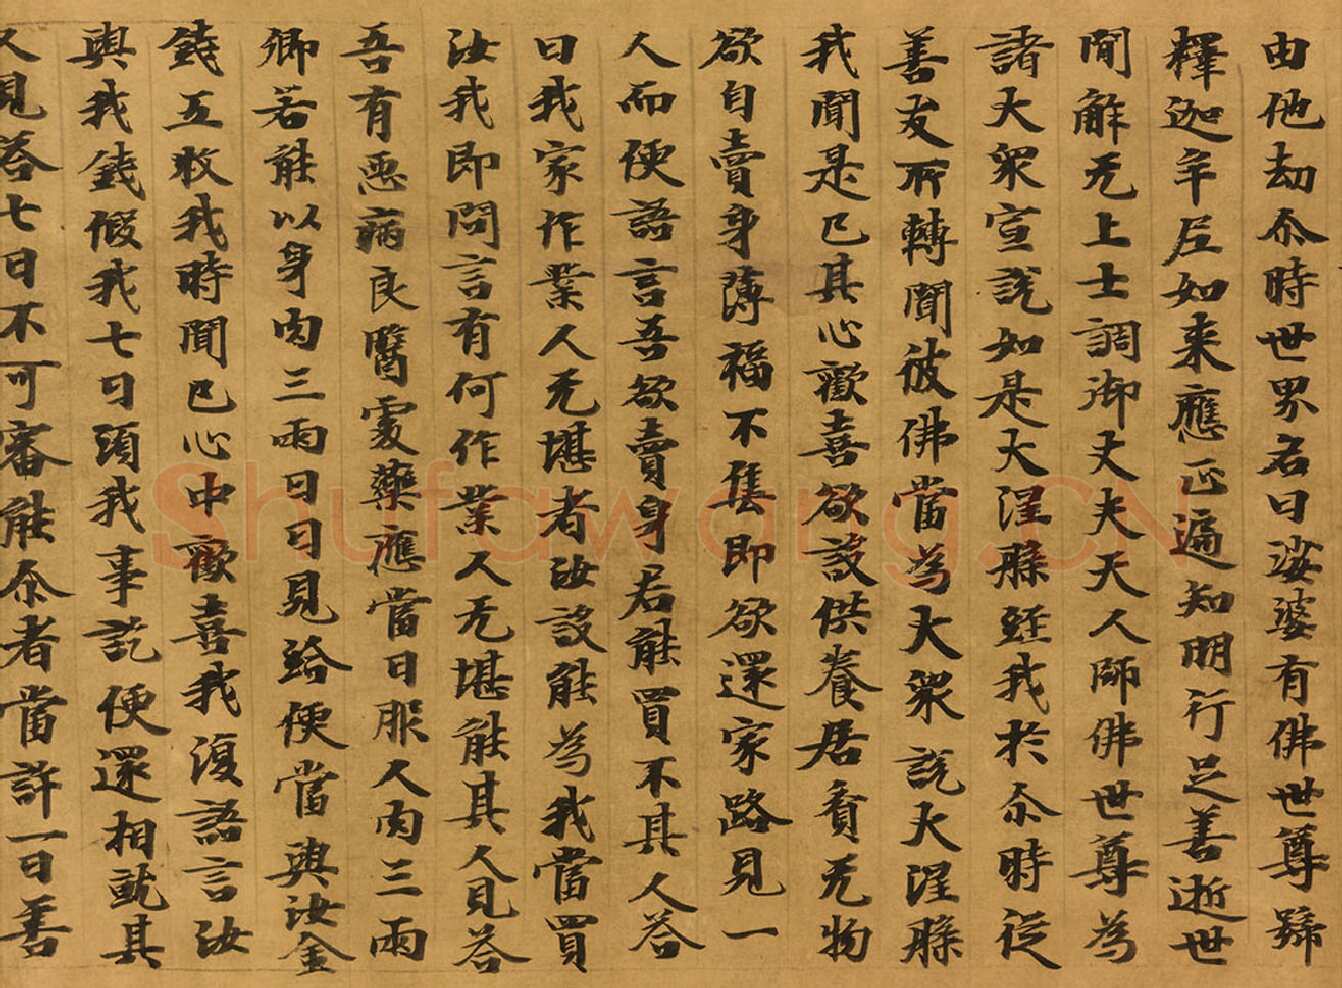 由他劫尒時世界名曰娑婆有佛世尊號
釋迦牟尼如来應正遍知明行足善逝世
間解无上士調御丈夫天人師佛世尊為
諸大衆宣說如是大涅槃經我於尒時從
善友所轉聞彼佛當為大衆說大涅槃
我聞是已其心歡喜欲設供養居貧无物
欲自賣身薄福不售即欲還家路見一
人而便語言吾欲賣身君能買不其人荅
曰我家作業人无堪者汝設能為我當買
汝我即問言有何作業人无堪能其人見荅
吾有惡病良醫處藥應當日服人肉三兩
卿若能以身肉三兩日日見給便當與汝金
錢五枚我時聞已心中歡喜我復語言汝
與我錢假我七日須我事訖便還相就其
人見荅七日不可審能尒者當許一日善
Shufawang.CN